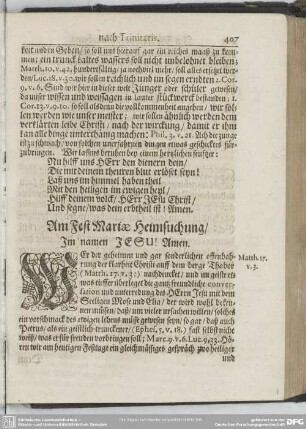 nach Trinitatis. 407
keit und en Geben / so soll uns hierauf gar ein reiches maaß zu kommen:
ein trunck kaltes wassers soll nicht unbelohnet bleiben;
Matth. 10. v. 42. hundertfältig ja noch viel mehr, soll alles ersetzt werden
/ Luc. 18. v. 30. wir sollen reichlich und im segen erndten 2. Cor.
9. v. 6. Sind wir hier in dieser welt Jünger oder schüler gewesen /
da unser wissen und weissagen in lauter stückwerck bestanden 1.
Cor. 13. v. 9. 10. so soll alsdenn die vollkommenheit angehen / wir sollen
werden wie unser meister; wir sollen ähnlich werden dem
verklärten leibe Christi / nach der wirckung / damit er ihm
kan alle dinge unterthänig machen: Phil. 3. v. 21. Ach der zunge
ist zu schwach / von solchen unerfahrnen dingen etwas geschicktes fürzubringen.
Wir lassens beruhen bey einem hertzlichen seufzer:
Nu hilff uns HErr den dienern dein /
Die mit deinem theuren blut erlöset seyn!
Laß uns im himmel haben theil
Mit den heiligen im ewigen heyl /
Hilff deinem volck / HErr JEsu Christ /
Und segne / was dein erbtheil ist! Amen.
Am Fest Mariæ Heimsuchung /
Im namen JESU! Amen.
WEr die geheime und gar sonderlichen offenbahrung
der Klarheit Christi auff dem berge Thabor
(Matth. 17. v. 3:) nachdencket / und im geist etwas
tieffer überleget die gantz freundliche conversation
und unterredung des HErrn Jesu mit dem
Heiligen Mose und Elia / der wird wohl bekennen
müssen / daß / um vieler ursachen willen / solches
ein vorschmack des ewigen lebens müste gewesen seyn / so gar / daß auch
Petrus / als ein geistlich trunckner / (Ephes. 5. v. 18.) fast selbst nicht
weiß / was er für freuden vorbringen soll; Marc. 9. v. 6. Luc. 9. 33. Hören
wir am heutigen Festtage ein gleichmässiges gespräch zwo heiliger
und
Matth. 17.
v. 3.